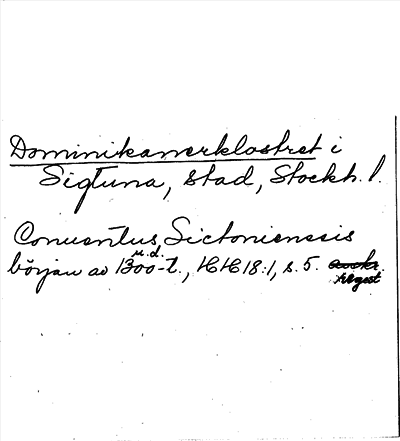 Dominikanerklostret i
Sigtuna, stad, Stockh. l.
Conventus Sictoniensis
u.d.
början av 1300-t., HH 18:1, s. 5.
Regest